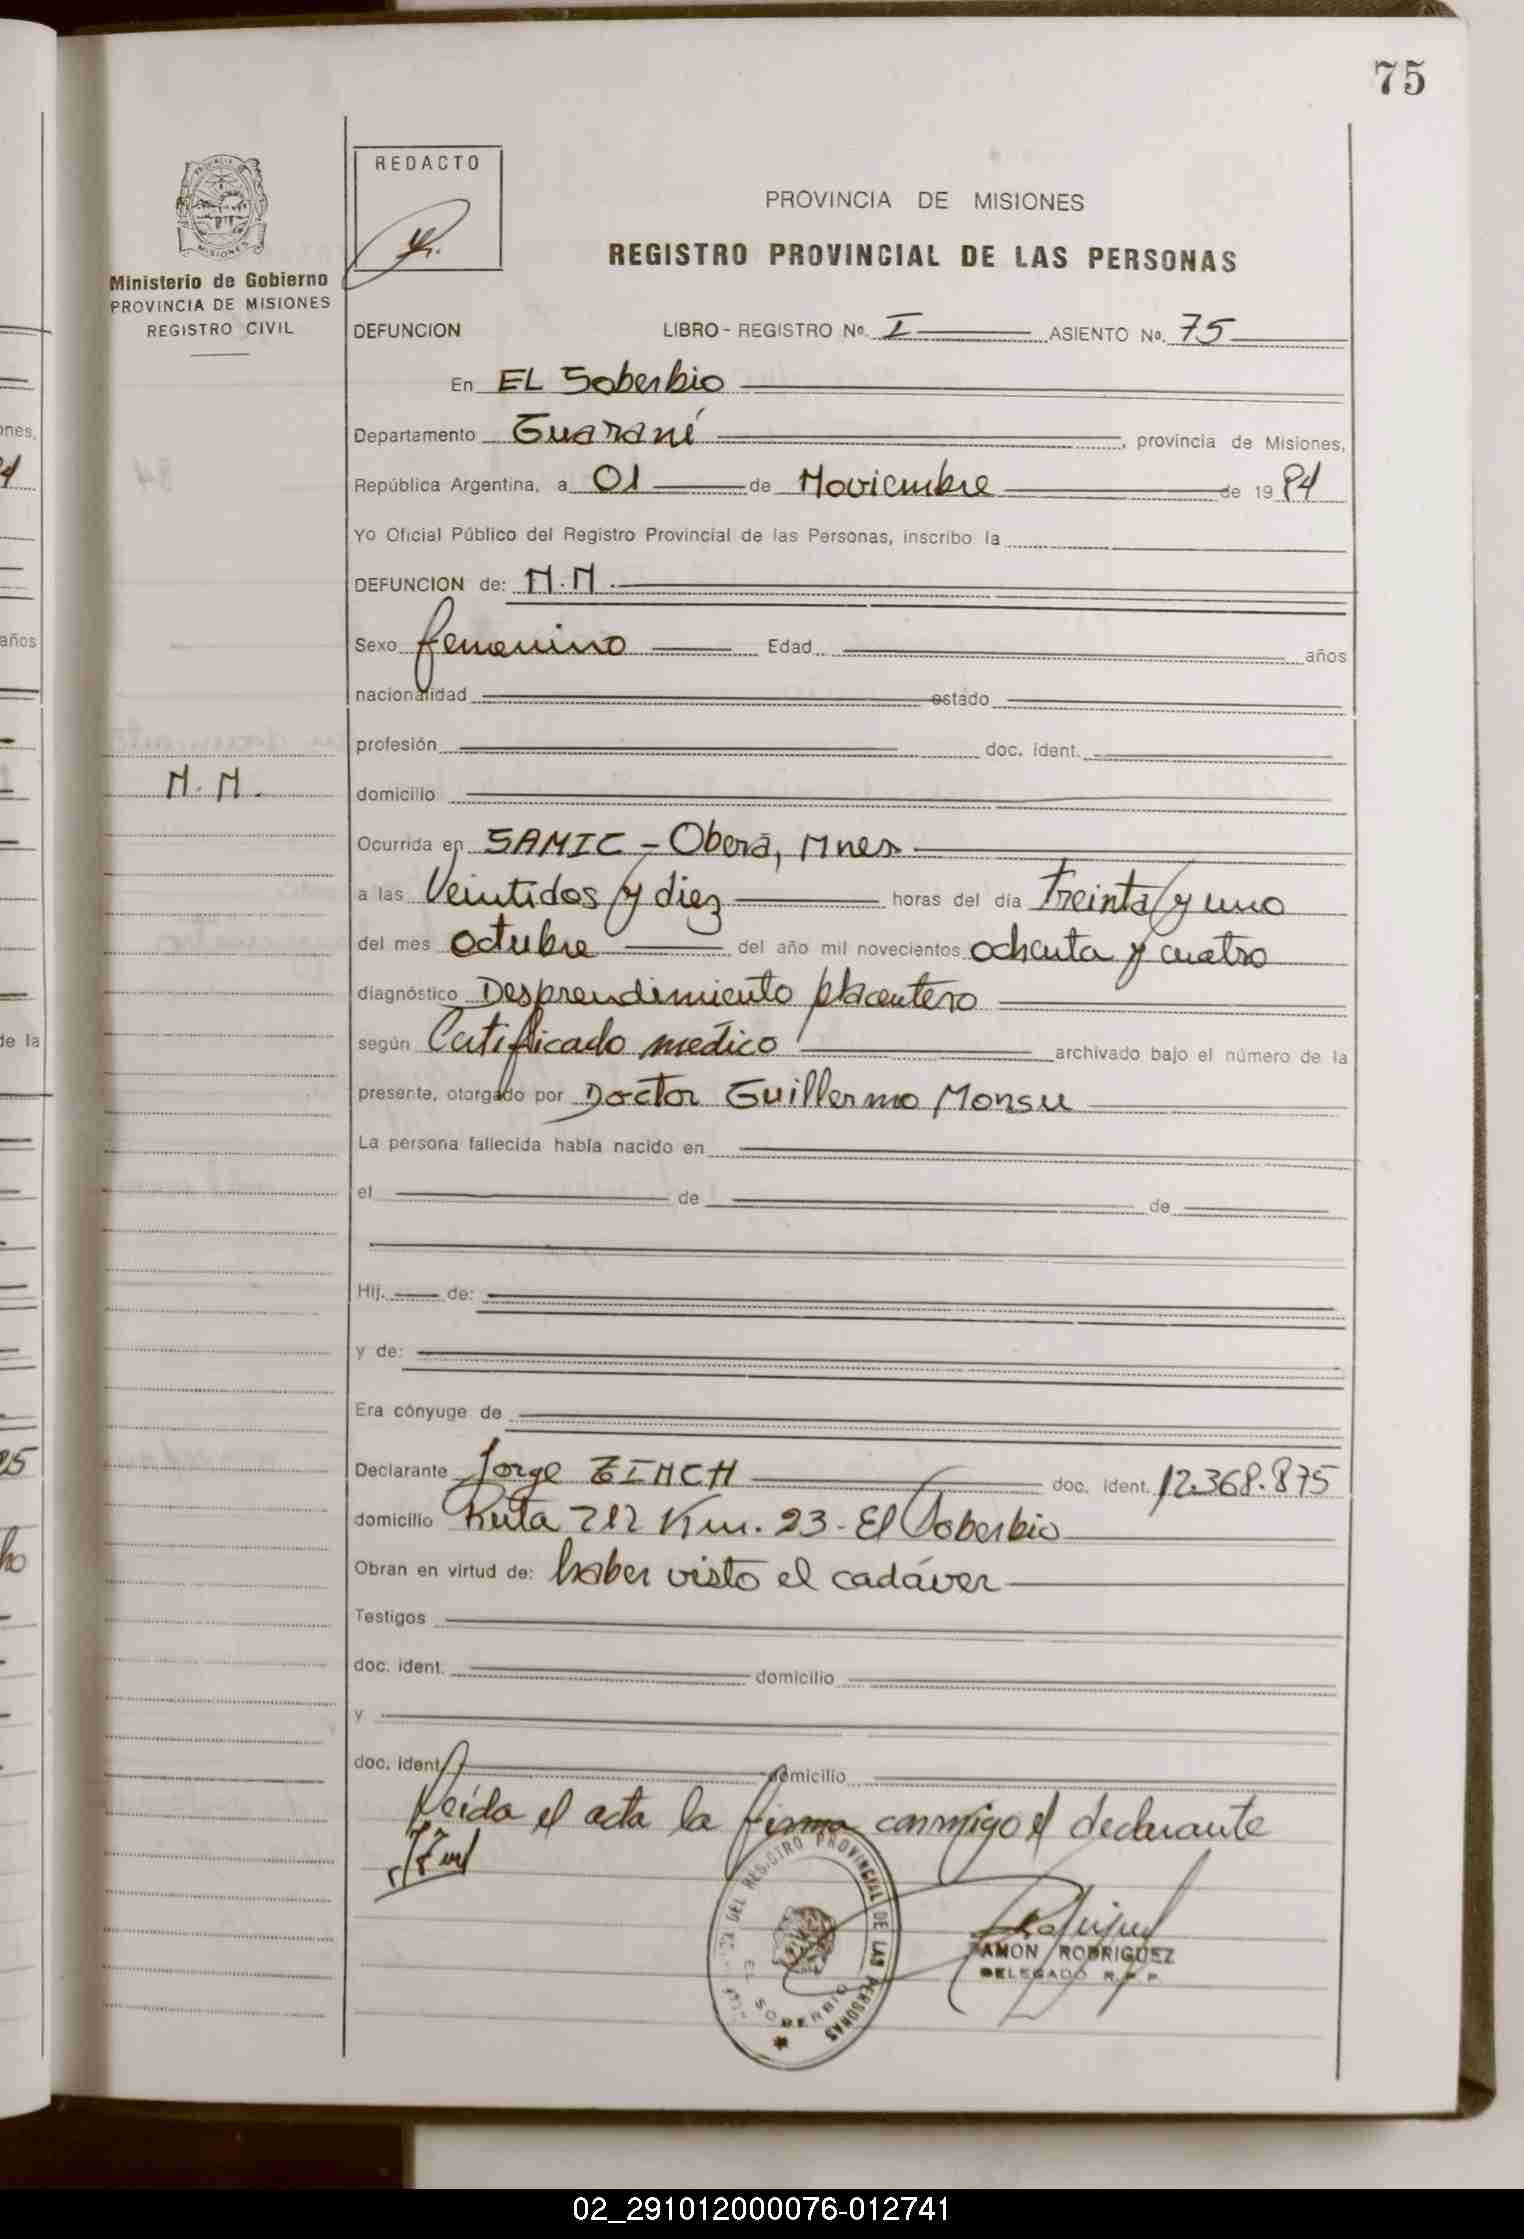 75
REDACTO
PROVINCIA DE MISIONES
REGISTRO PROVINCIAL DE LAS PERSONAS
Ministerio de Gobierno
PROVINCIA DE MISIONES
REGISTRO CIVIL
DEFUNCION LIBRO - REGISTRO No. I ASIENTO No. 75
En EL Soberbio
Departamento Guaraní, provincia de Misiones,
República Argentina, a 01 de Noviembre de 1984
Yo Oficial Público del Registro Provincial de las Personas, inscribo la
DEFUNCION de: N.N.
Sexo femenino Edad años
nacionalidad estado
profesión doc. ident.
N.N.
domicilio
Ocurrida en SAMIC - Oberá, Mnes
a las Veintidos y diez horas del día Treinta y uno
del mes octubre del año mil novecientos ochenta y cuatro
diagnóstico Desprendimiento placentero
según Certificado medico archivado bajo el número de la
presente, otorgado por Doctor Guillermo Monsu
La persona fallecida había nacido en
el de de
Hij. de:
y de:
Era cónyuge de
Declarante Jorge ZINCH doc. ident. 12.368.875
domicilio Ruta 212 Km. 23 - El Soberbio
Obran en virtud de: haber visto el cadáver
Testigos
doc. ident. domicilio
y
doc. ident. domicilio
Leída el acta la firma conmigo el declarante
DEL REGISTRO PROVINCIAL DE LAS PERSONAS
EL SOBERBIO
AMON RODRIGUEZ
DELEGADO R.P.P.
02_291012000076-012741